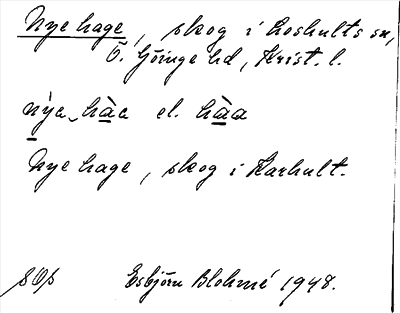 Nye hage, skog i Loshults sn,
Ö. Göinge hd, Krist. l.
nỳa hàa el. hàa
Nye hage, skog i Karhult.
Esbjörn Blohmé 1948.